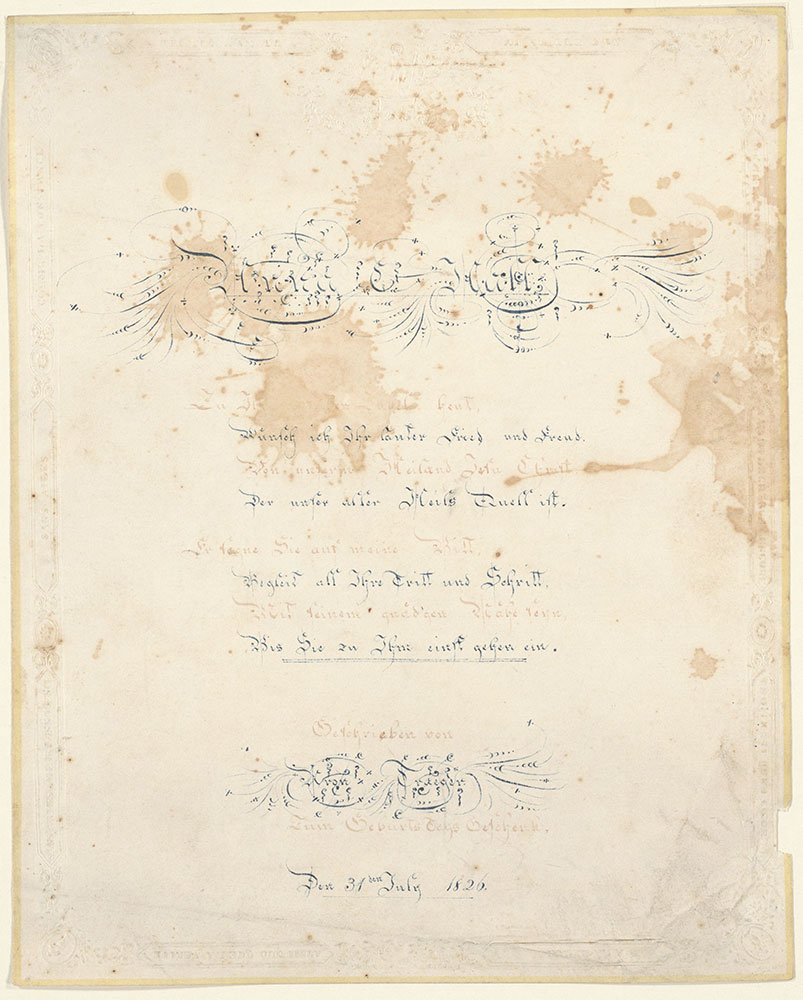 Zu beut,
Wünsch ich Ihr lauter Fried und Freud.
Von unserm Heiland Jesu Christ
Der unser aller Heils Quell ist.
Er segne Sie auf meine Bitt,
Begleit all Ihre Tritt und Schritt,
Mit seinem gnädgen Nahe seyn,
Bis Sie zu Ihm einst gehen ein.
Geschrieben von
Traeger
Zum Geburts Tags Geschenk.
Den 31ten July 1826.